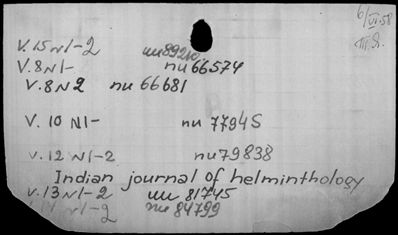 6/VI-58
V.15 N1-2 nu89210
V.8 N1- nu 66574
V.8 N2 nu 66681
V.10 N1- nu 77945
V.12 N1-2 nu79838
Indian journal of helminthology
V.13 N1-2 nu 81745
V.14 N1-2 nu 84799